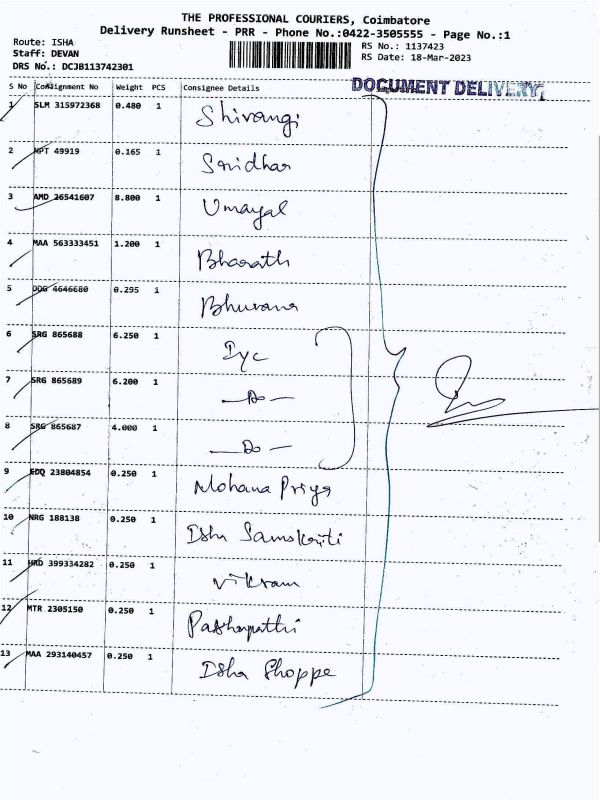 THE PROFESSIONAL COURIERS, Coimbatore
Delivery Runsheet - PRR - Phone No.:0422-3505555 - Page No.:1
Route: ISHA
Staff: DEVAN
DRS No.: DCJB113742301
RS No.: 1137423
RS Date: 18-Mar-2023
DOCUMENT DELIVERY
S No Consignment No Weight PCS Consignee Details
1 SLM 315972368 0.480 1 Shivangi
2 NPT 49919 0.165 1 Snidhar
3 AMD 26541607 8.800 1 Umayal
4 MAA 563333451 1.200 1 Bharath
5 4646680 0.295 1 Bhuvana
6 SRG 865688 6.250 1 Iyc
7 SRG 865689 6.200 1 —Do—
8 SRG 865687 4.000 1 —Do—
9 EDQ 23804854 0.250 1 Mohana Priya
10 NRG 188138 0.250 1 Isha Samskriti
11 HRD 399334282 0.250 1 Vikram
12 MTR 2305150 0.250 1 Pashupathi
13 MAA 293140457 0.250 1 Isha Shoppe